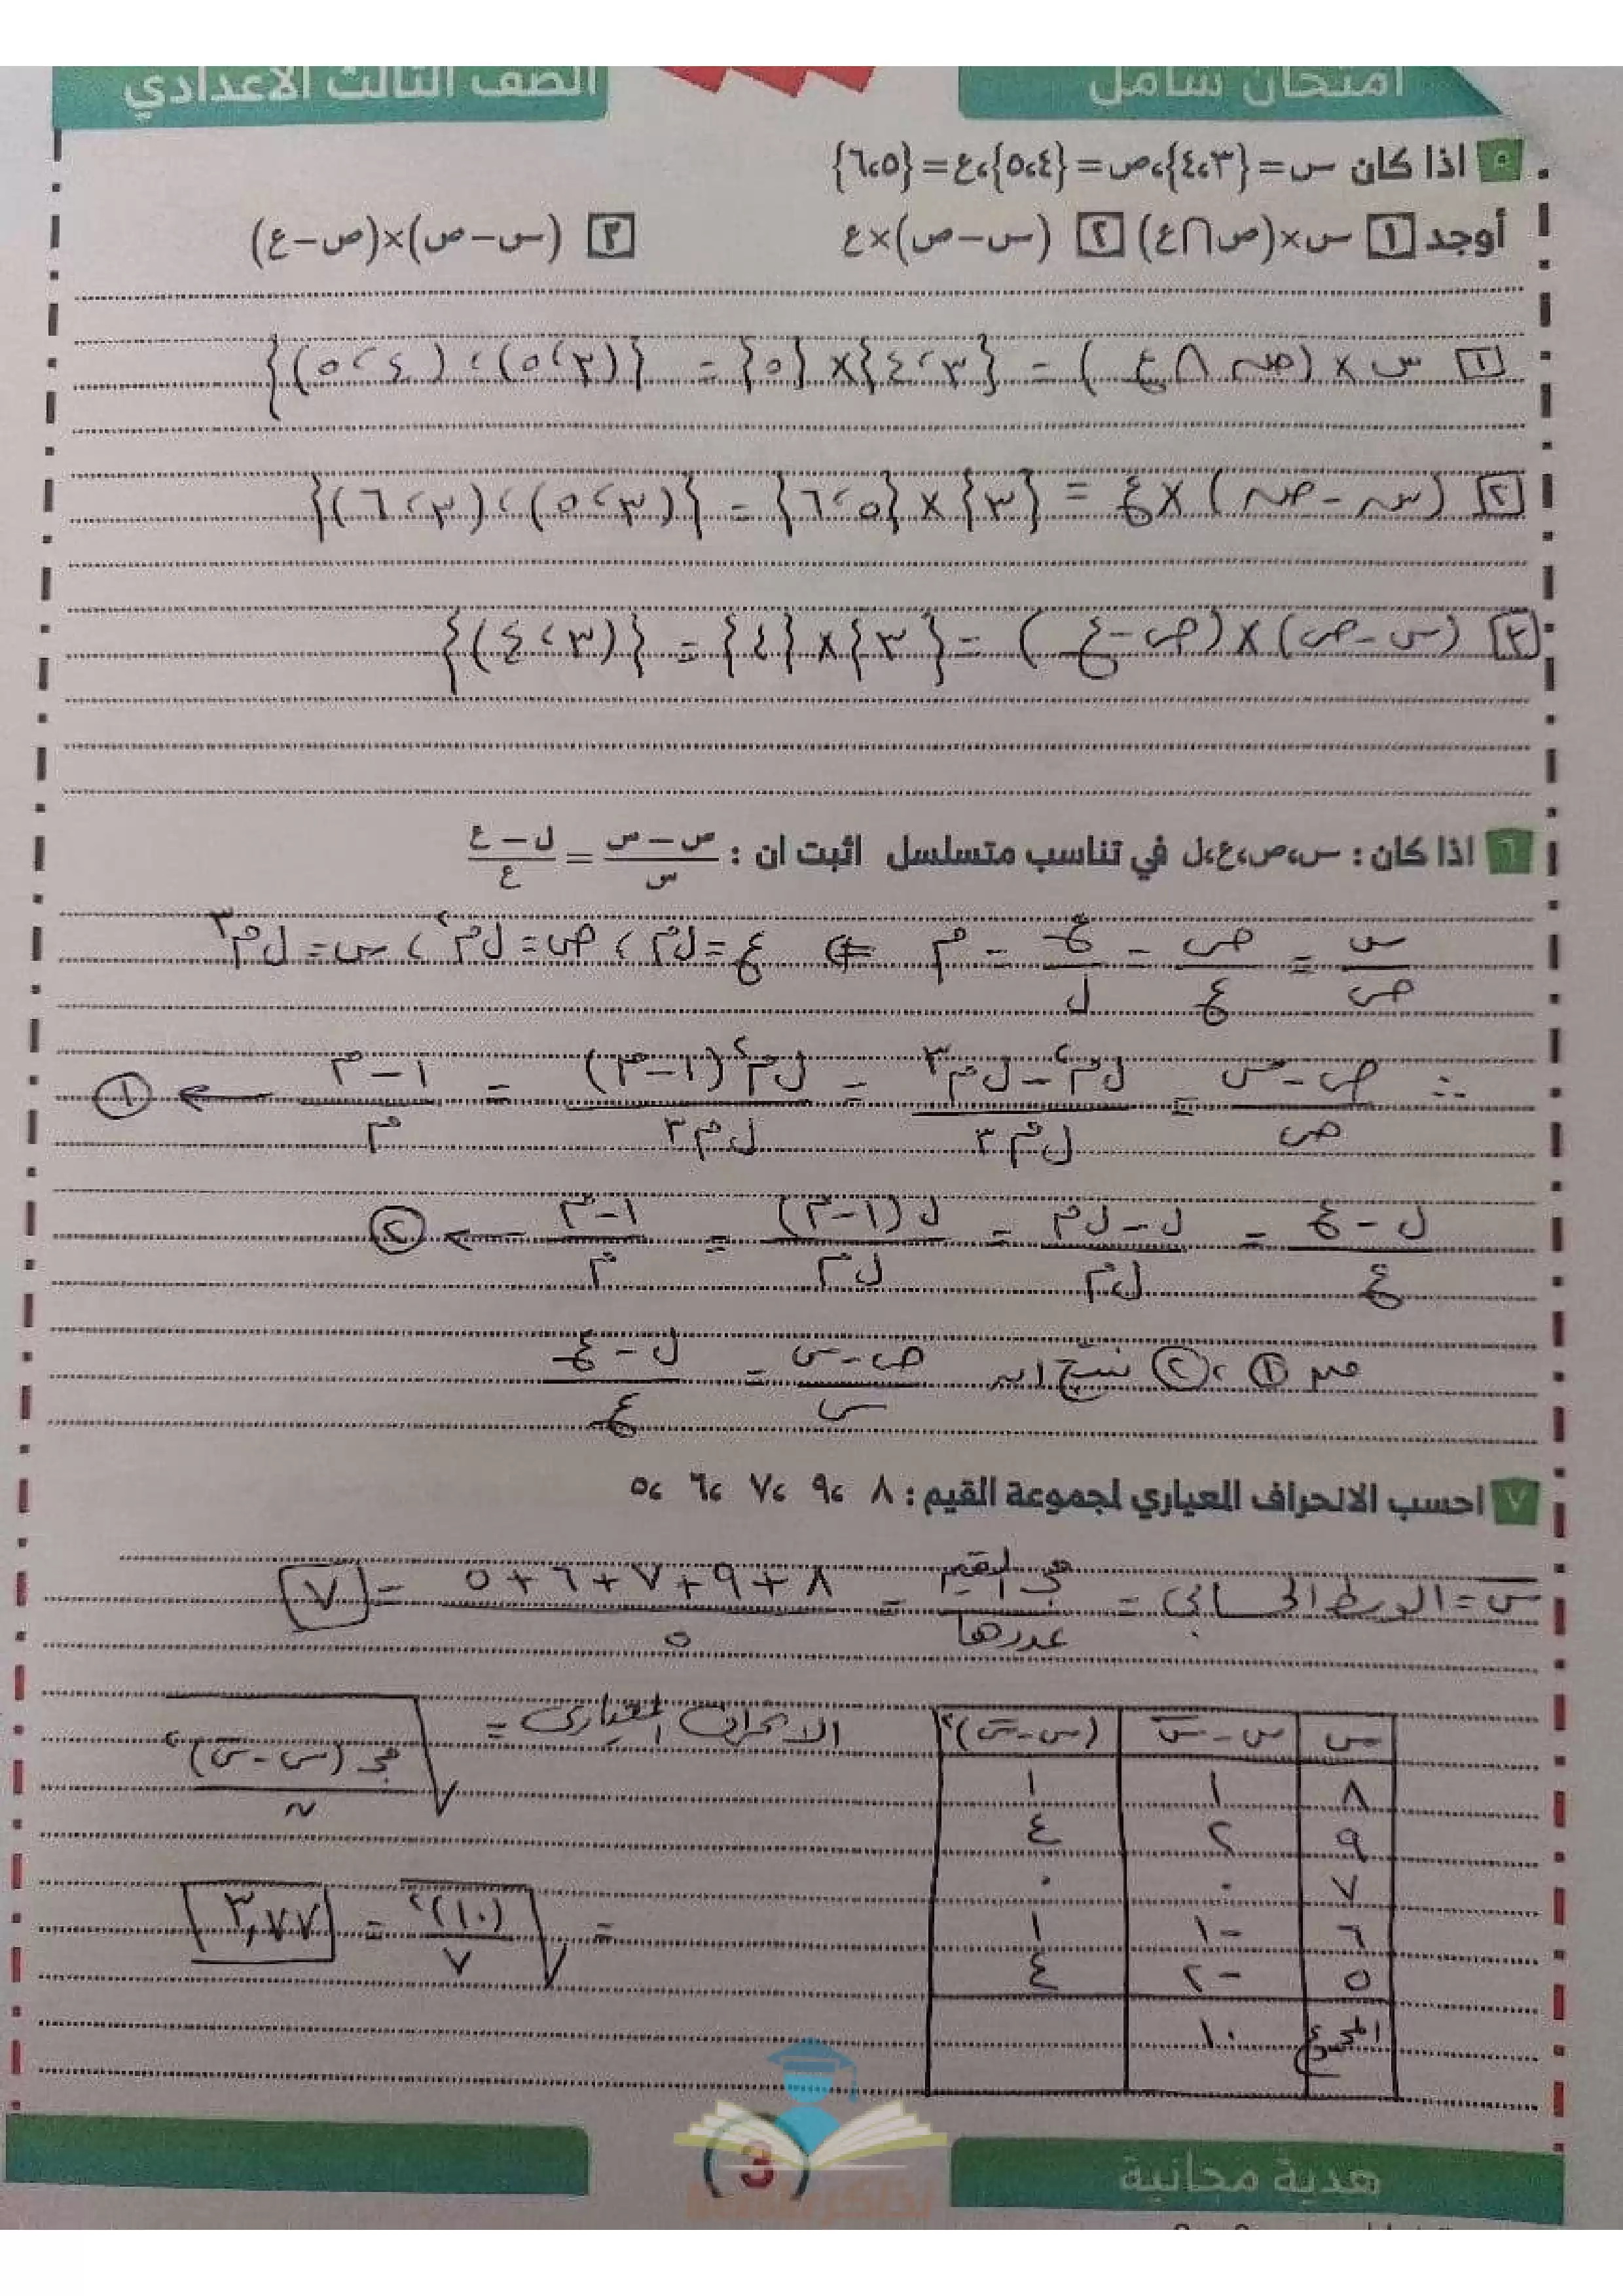 امتحان شامل
الصف الثالث الاعدادي
٥ اذا كان س = {٤،٣}،ص = {٥،٤}،ع = {٦،٥}
أوجد ١ س×(ص∩ع) ٢ (س–ص)×ع ٣ (س–ص)×(ص–ع)
١ س × (ص ∩ ع) = {٣،٤} × {٥} = {(٣،٥)،(٤،٥)}
٢ (س – ص) × ع = {٣} × {٥،٦} = {(٣،٥)،(٣،٦)}
٣ (س – ص) × (ص – ع) = {٣} × {٤} = {(٣،٤)}
٦ اذا كان : س،ص،ع،ل في تناسب متسلسل اثبت ان : (ص – س)/س = (ل – ع)/ع
س/ص = ص/ع = ع/ل = م ⇐ ع = ل م ، ص = ل م² ، س = ل م³
∴ (ص – س)/ص = (ل م² – ل م³)/(ل م³) = (ل م² (١ – م))/(ل م³) = (١ – م)/م ← ١
(ل – ع)/ع = (ل – ل م)/(ل م) = (ل (١ – م))/(ل م) = (١ – م)/م ← ٢
من ١ ، ٢ نتج ان (ص – س)/س = (ل – ع)/ع
٧ احسب الانحراف المعياري لمجموعة القيم : ٨ ،٩ ،٧ ،٦ ،٥
س̄ = الوسط الحسابي = مج القيم/عددها = (٨ + ٩ + ٧ + ٦ + ٥)/٥ = ٧
س | س – س̄ | (س – س̄)²
٨ | ١ | ١
٩ | ٢ | ٤
٧ | ٠ | ٠
٦ | –١ | ١
٥ | –٢ | ٤
المجموع | ١٠
الانحراف المعيارى = √(مج (س – س̄)²/ن)
= √((١٠)²/٧) = ٣,٧٧
هدية مجانية
3
ذاكر